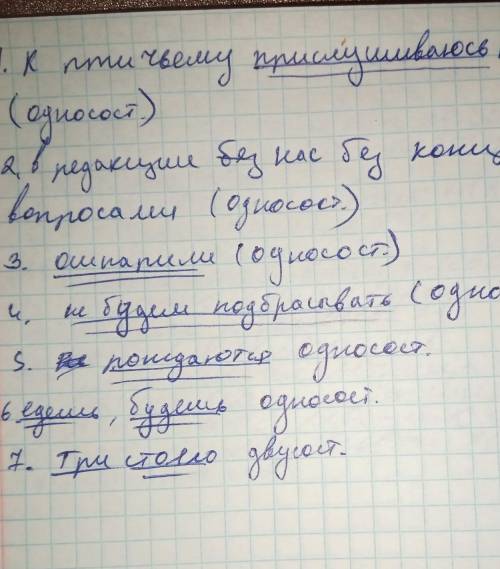 1. к птичьему прислушиваюсь
(односост.)
2. в редакции без нас без конц
вопросами (односост.)
3. ошпарили (односост.)
4. не будем подбрасывать (одно
5. рождаются односост.
6 едешь, будешь односост.
7. Три стояло двусост.